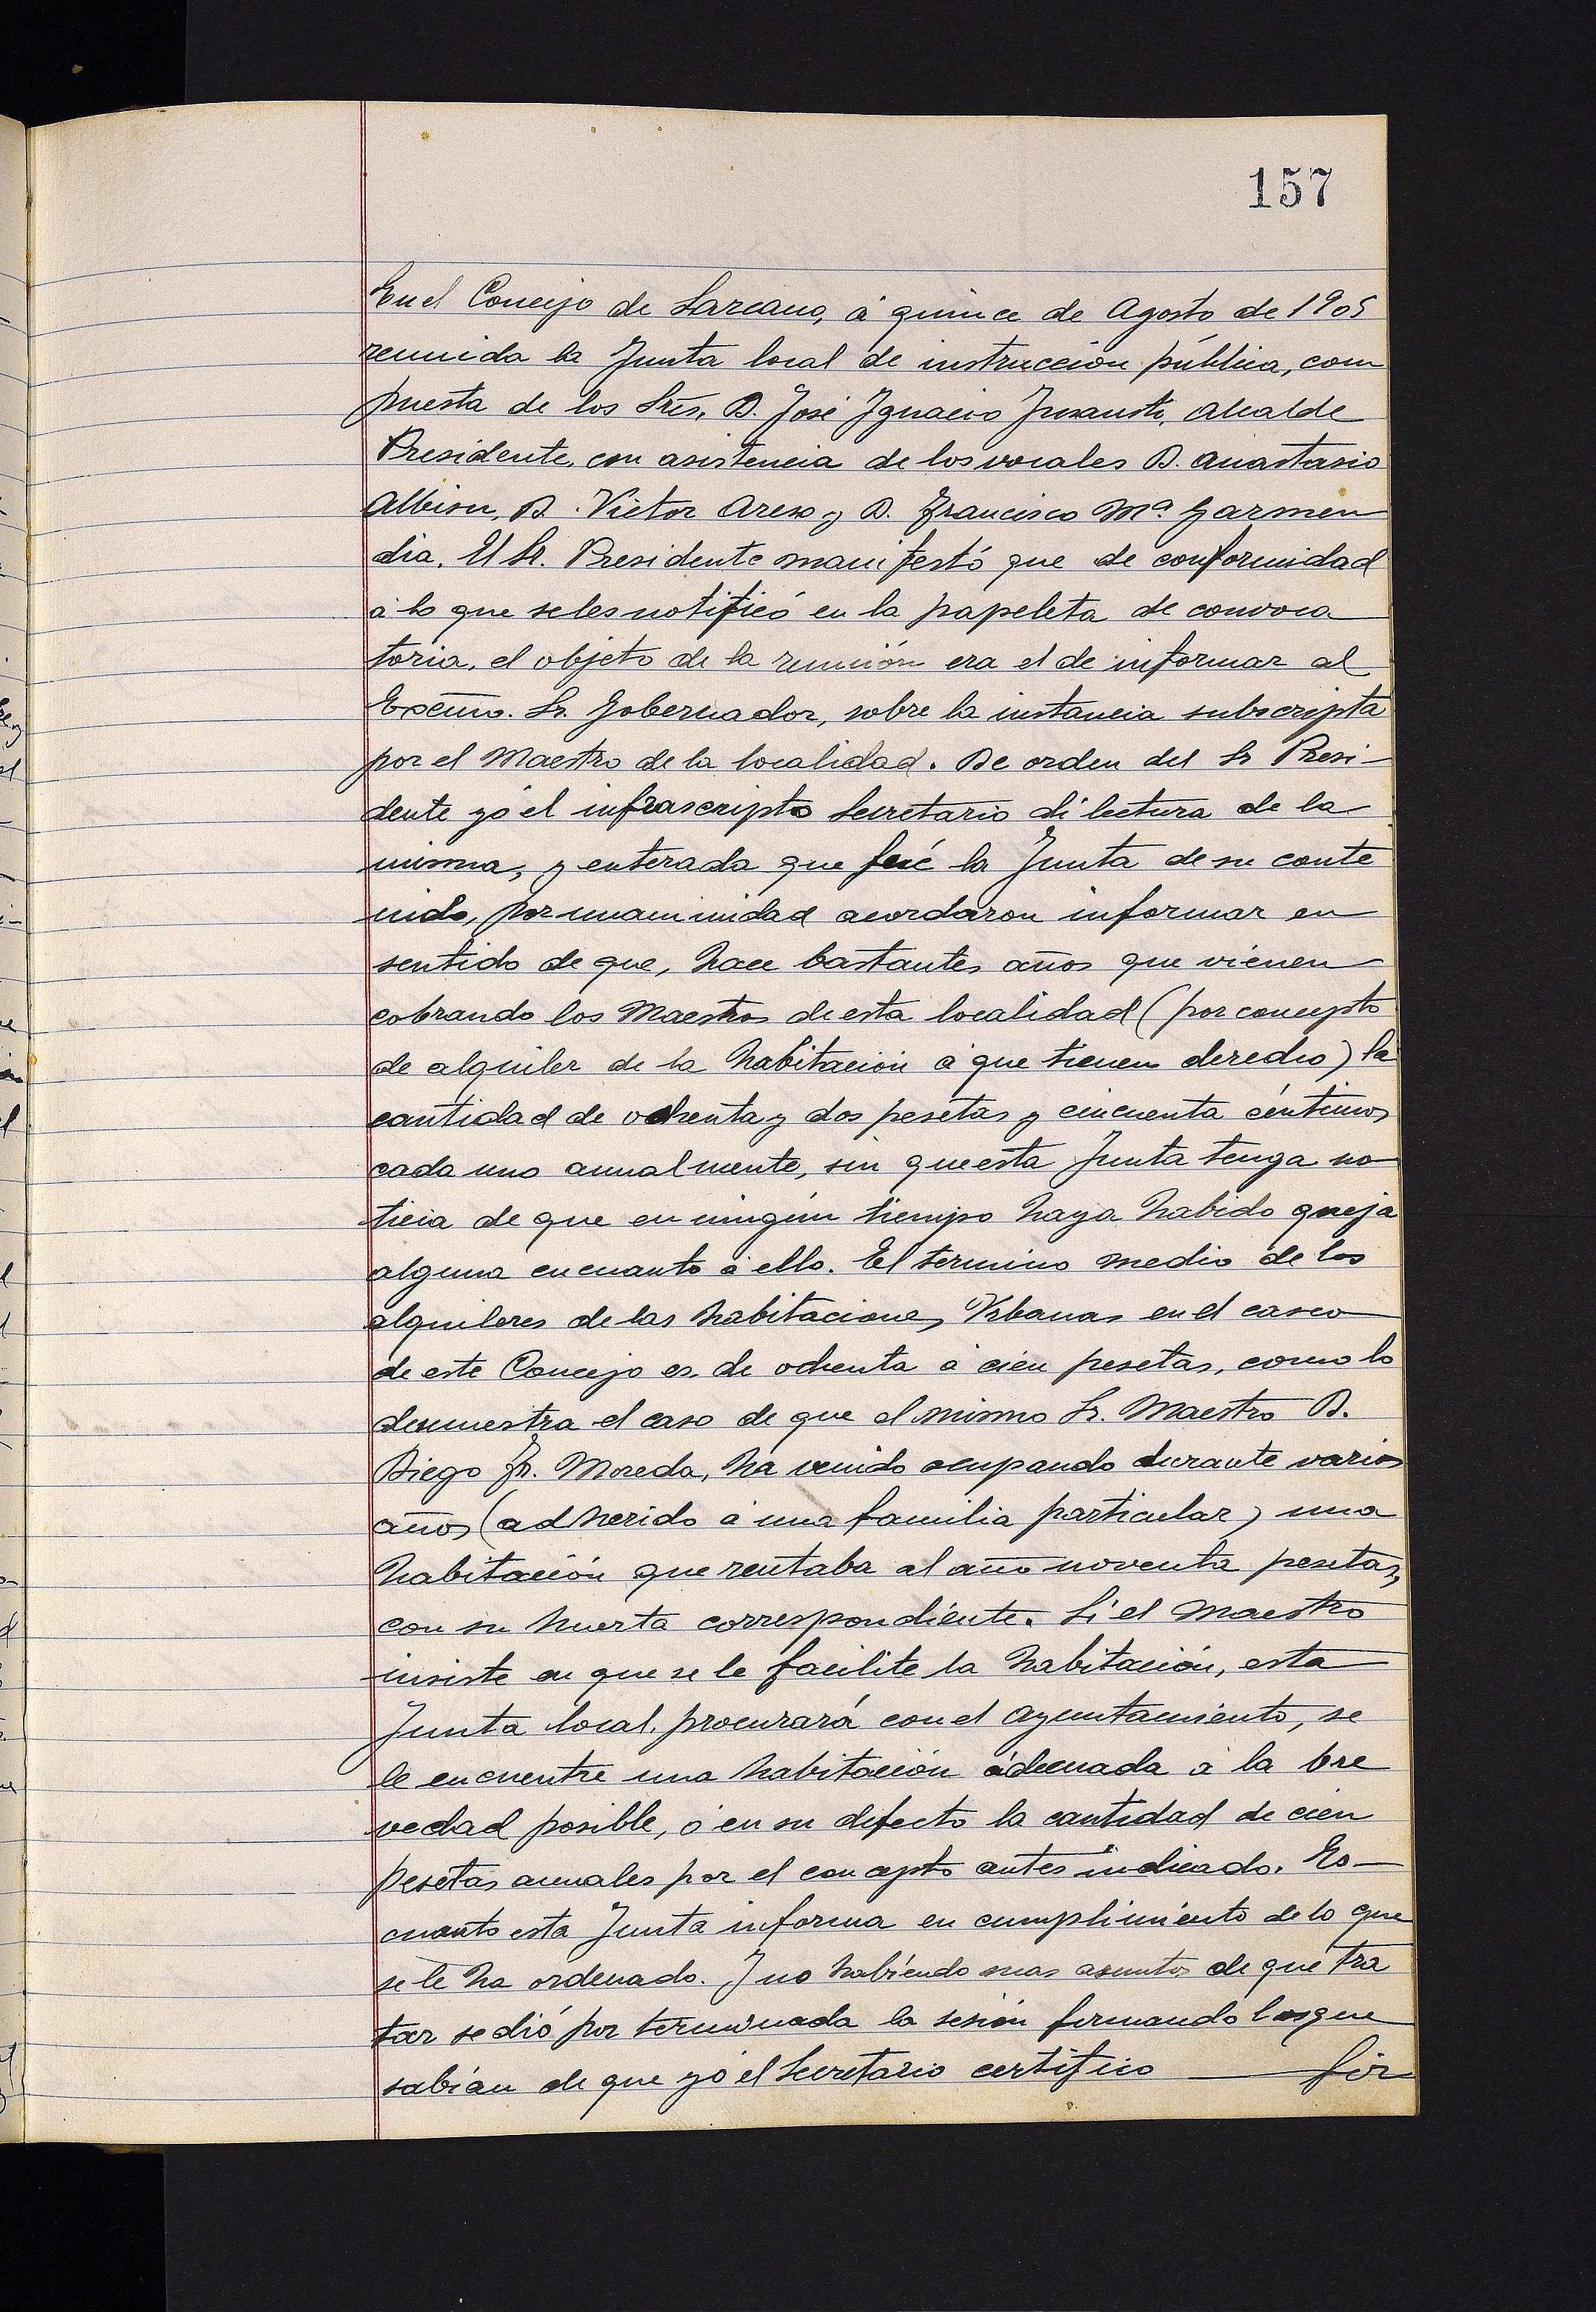 157
En el Concejo de Lazcano, á quince de Agosto de 1905
reunida la Junta local de instrucción pública, com
puesta de los Sres, D. José Ignacio Alcalde
Presidente, con asistencia de los vocales D. Anastasio
Albisu, D. Victor Areso y D. Francisco Mª Garmen
dia. El Sr. Presidente manifestó que de conformidad
á lo que se les notificó en la papeleta de convoca
toria, el objeto de la reunión era el de informar al
Excmo. Sr. Gobernador, sobre la instancia subscripta
por el Maestro de la localidad. De orden del Sr Presi-
dente yó el infrascripto Secretario dí lectura de la
misma, y enterada que fué la Junta de su conte
nido, por unanimidad acordaron informar en
sentido de que, hace bastantes años que vienen
cobrando los Maestros de esta localidad (por concepto
de alquiler de la habitación á que tienen derecho) la
cantidad de ochenta y dos pesetas y cincuenta céntimos
cada uno anualmente, sin que esta Junta tenga no
ticia de que en ningún tiempo haya habido queja
alguna en cuanto á ello. El termino medio de los
alquileres de las habitaciones Urbanas en el casco
de este Concejo es de ochenta á cien pesetas, como lo
demuestra el caso de que el mismo Sr. Maestro D.
Diego Fr. Moreda, ha venido ocupando durante varios
años (adherido á una familia particular) una
habitación que rentaba al año noventa pesetas,
con su huerta correspondiente. Si el Maestro
insiste en que se le facilite la habitación, esta
Junta local, procurará con el Ayuntamiento, se
le encuentre una habitación adecuada á la bre
vedad posible, ó en su defecto la cantidad de cien
pesetas anuales por el concepto antes indicado. Es
cuanto esta Junta informa en cumplimiento de lo que
se le ha ordenado. Y no habiendo mas asuntos de que tra
tar se dió por terminada la sesión firmando los que
sabían de que yó el Secretario certifico — fir